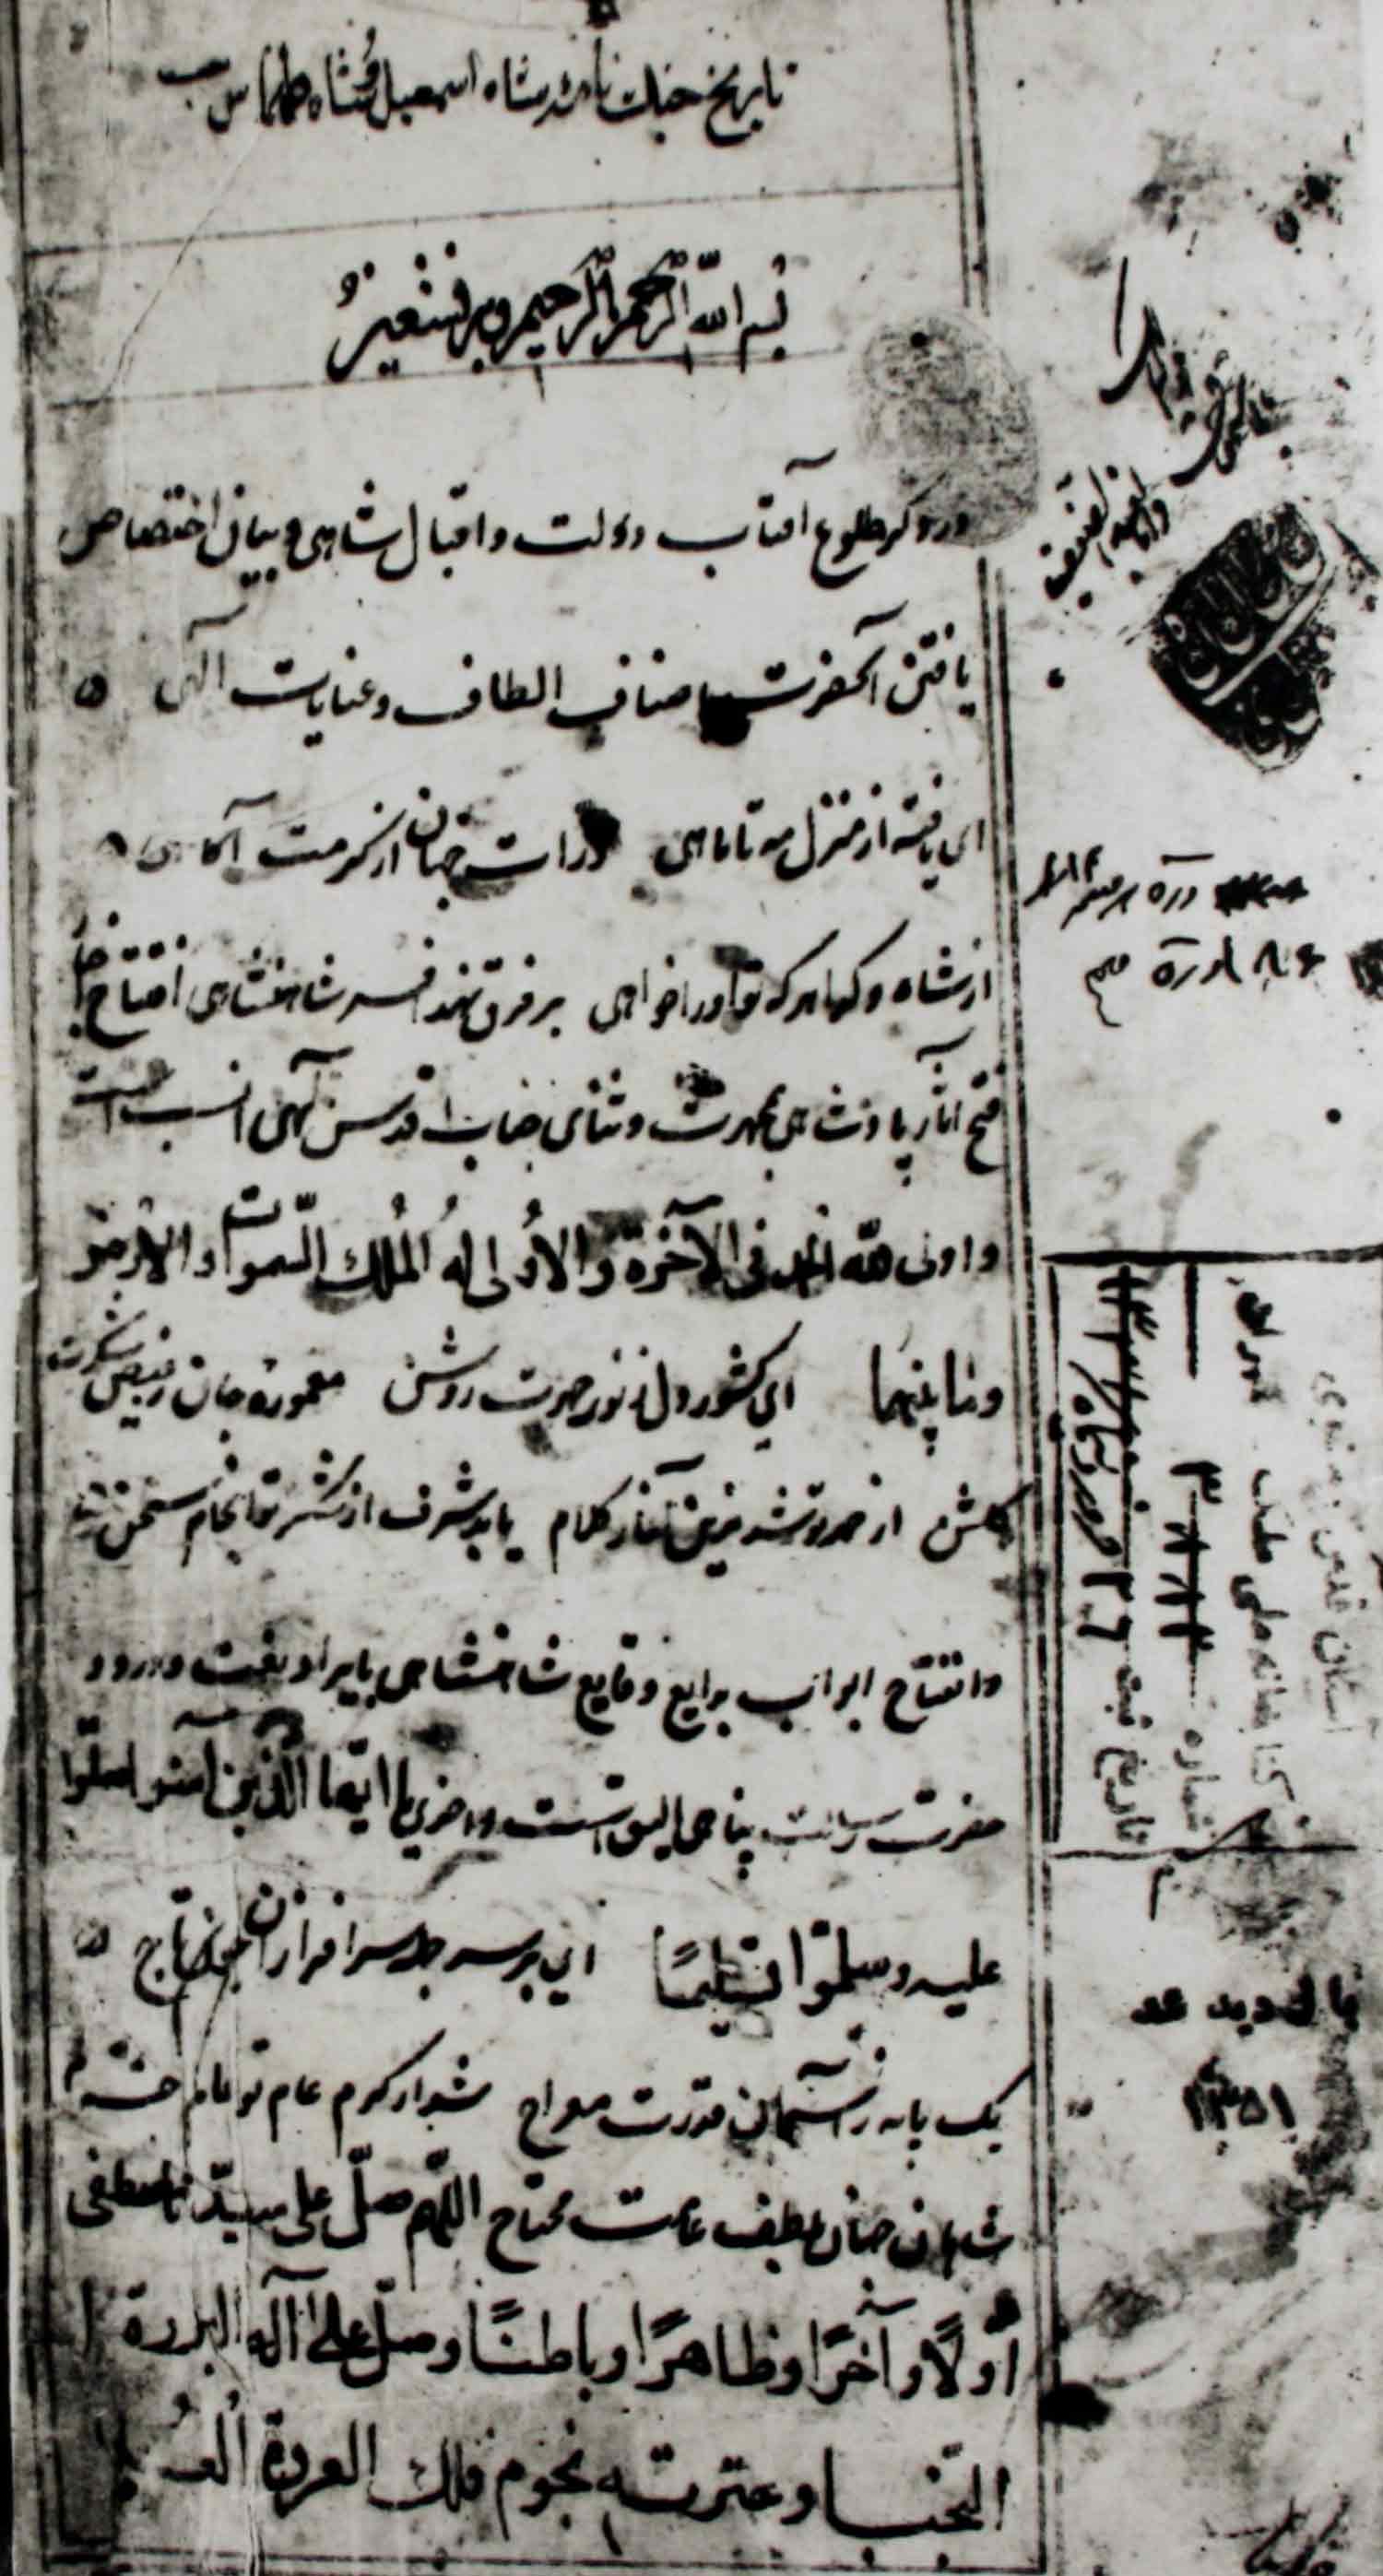 تاریخ جنک نامه شاه اسمعیل و شاه طهماسب
بسم الله الرحمن الرحیم و به نستعین
در ذکر طلوع آفتاب دولت و اقبال شاهی و بیان اختصاص
یافتن آنحضرت باصناف الطاف و عنایات الهی
ای یافته از منزل مه تا ماهی ذرات جهان از کرمت آکاهی
از شاه و کدا هر که تو اورا خواهی بر فرق نهد افسر شاهنشاهی افتتاح
فتح آثار پادشاهی بحمدت و ثنای جناب اقدس الهی انسب است
و اولی لله الحمد فی الآخرة و الاولی له الملک السموات و الارض
و ما بینهما ای کشور دل ز نور حمدت روشن معموره جان ز فیض شکرت
کلشن از حمد تو شد مزین آغاز کلام یابد شرف از شکر تو انجام سخن
و افتتاح ابواب بدایع وقایع شاهنشاهی بایراد نعت و درود
حضرت رسالت پناهی الیق است و احری یا ایها الذین آمنوا صلوا
علیه و سلموا تسلیما ای بر سر جمله سرافرازان تاج
یک پایه ز آسمان قدرت معراج شد از کرم عام تو
شاهان جهان بلطف عامت محتاج اللهم صل علی سیدنا المصطفی
اولاً و آخرًا و ظاهرًا و باطنًا و صل علی آله البررة
النجبا و عترته نجوم فلک
بازدید شد
۱۳۵۱
آستان قدس رضوی
کتابخانه ملی ملک تهران
شماره
تاریخ ثبت